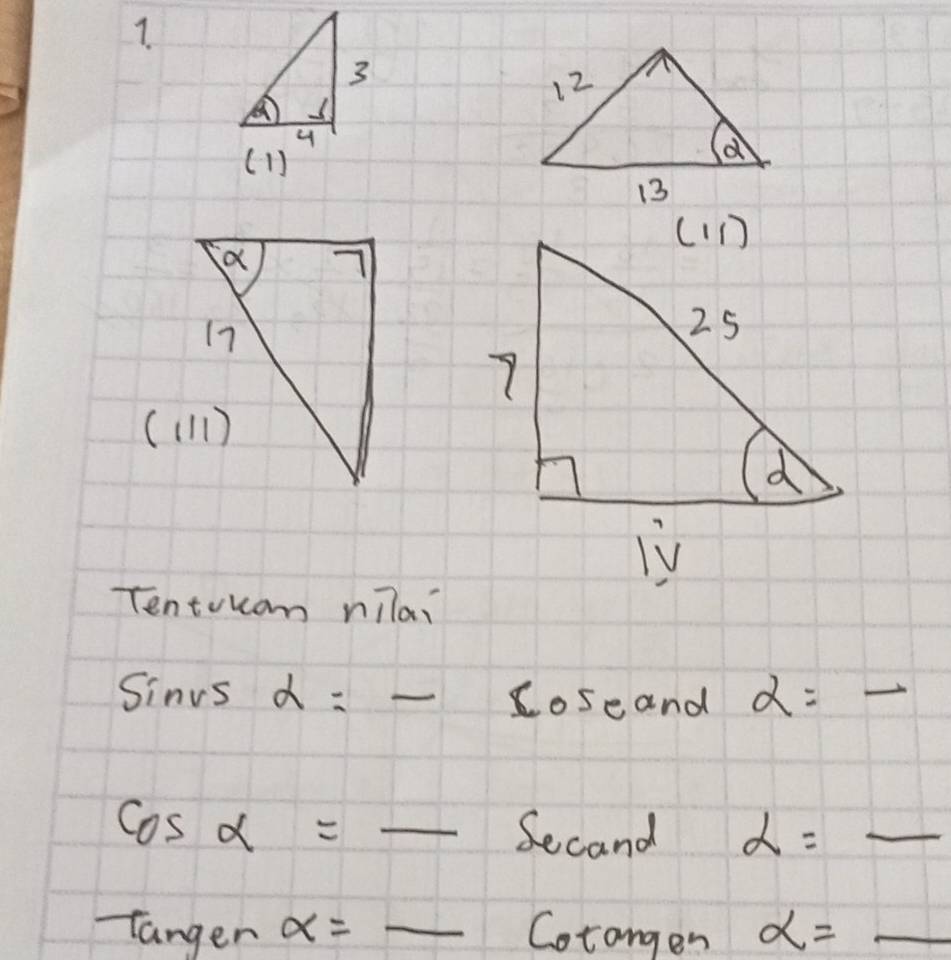 1.
3
α
4
(I)
12
α
13
(II)
α
17
(III)
25
7
α
IV
Tentukan nilai
Sinus α = — Coseand α = —
Cos α = — Secand α = —
Tangen α = — Cotangen α = —